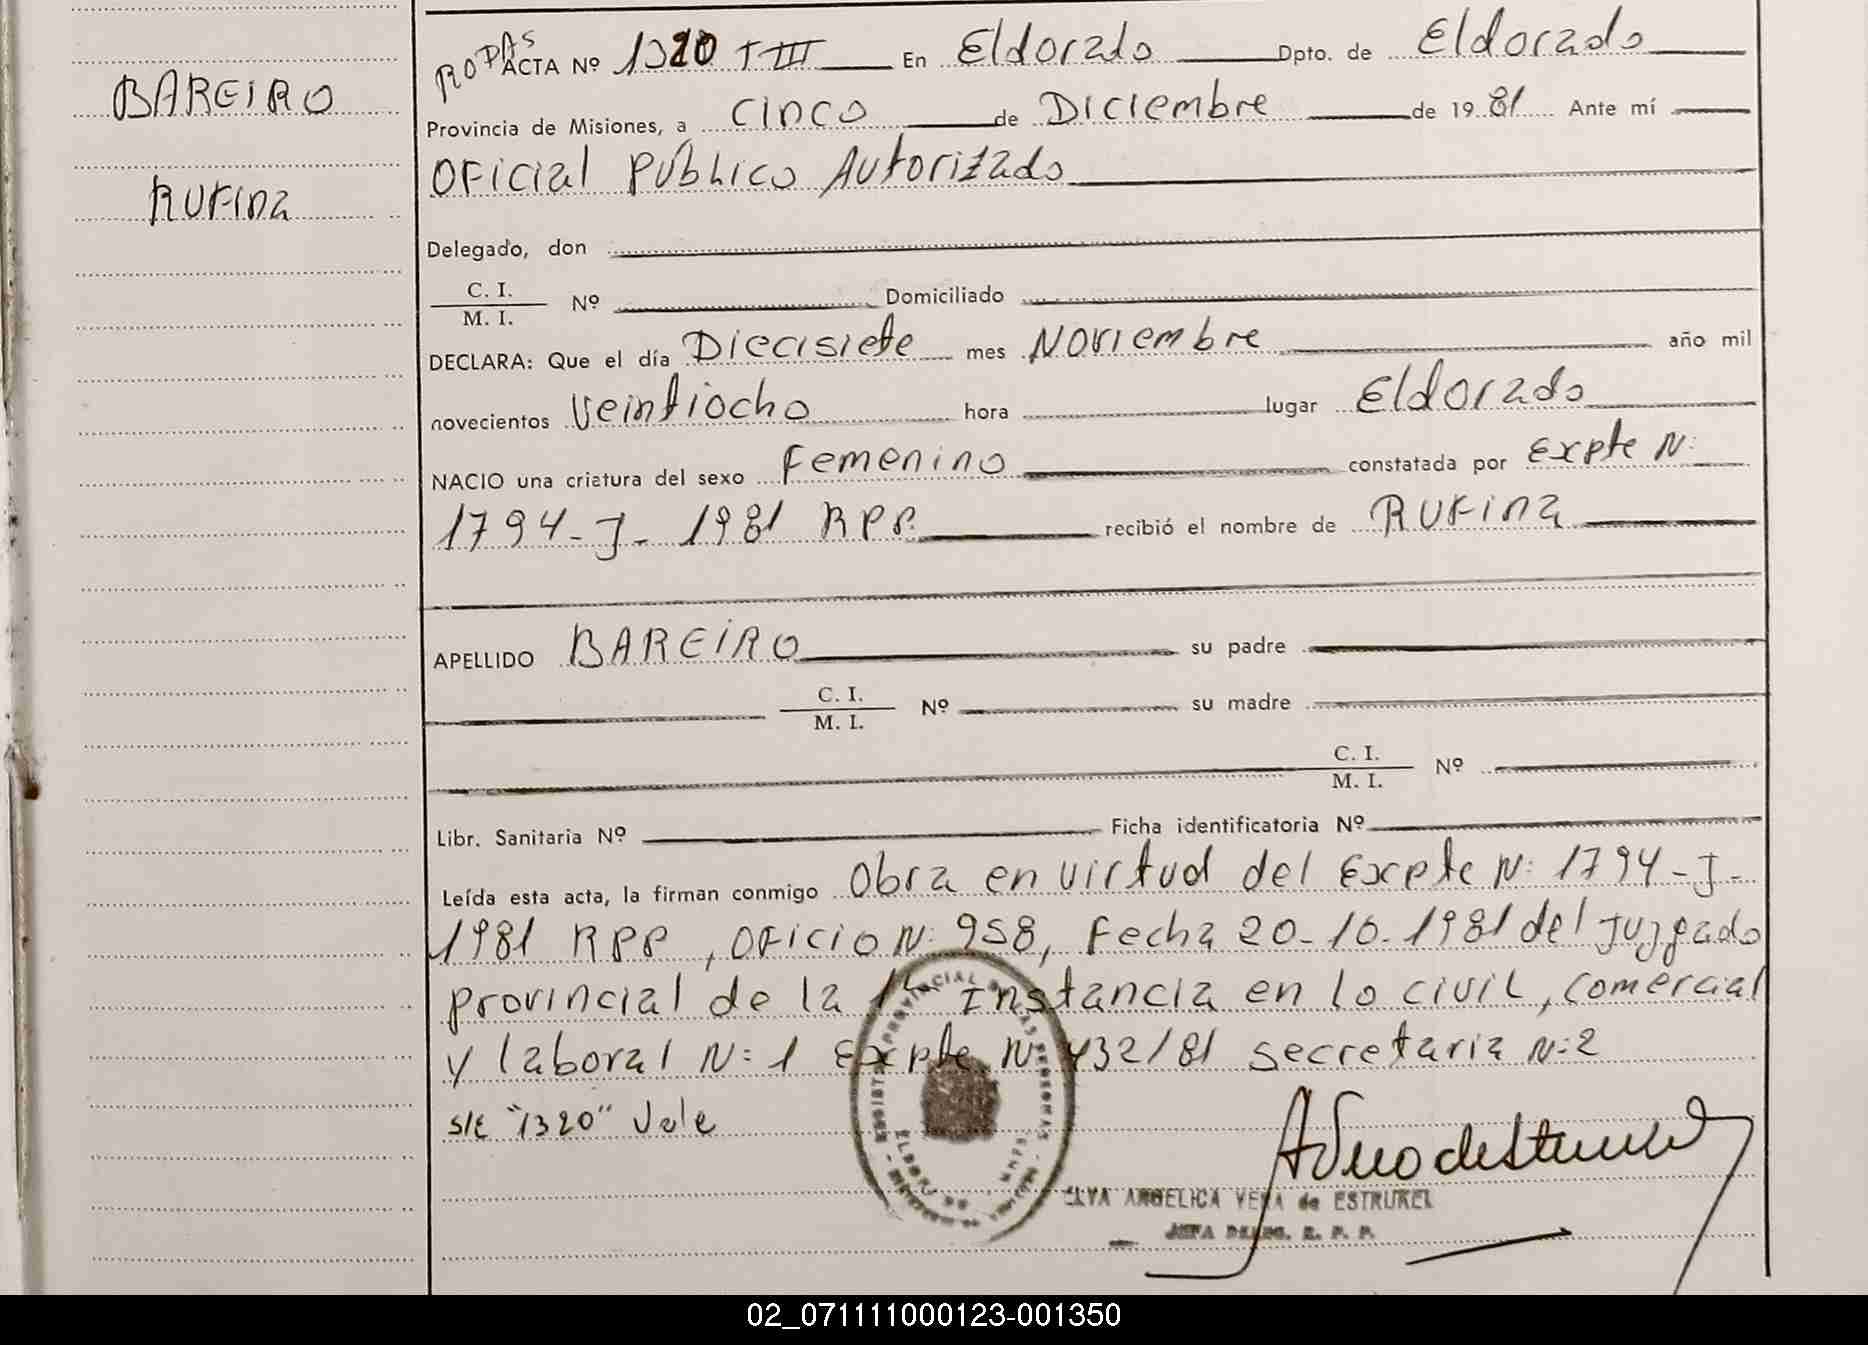 BAREIRO
RUFINA
RODAS
ACTA Nº 1320 T III En Eldorado Dpto. de Eldorado
Provincia de Misiones, a CINCO de DICIEMBRE de 1981 Ante mí
OFICIAL PÚBLICO AUTORIZADO
Delegado, don
C. I.
M. I. Nº Domiciliado
DECLARA: Que el día Diecisiete mes NOVIEMBRE año mil
novecientos Veintiocho hora lugar Eldorado
NACIO una criatura del sexo Femenino constatada por Expte N:
1794-J-1981 RPP. recibió el nombre de RUFINA
APELLIDO BAREIRO su padre
C. I.
M. I. Nº su madre
C. I.
M. I. Nº
Libr. Sanitaria Nº Ficha identificatoria Nº
Leída esta acta, la firman conmigo Obra en virtud del Expte N: 1794-J-
1981 RPP, OFICIO N: 958, Fecha 20-10-1981 del Juzgado
provincial de la 1ª Instancia en lo civil, comercial
y laboral N: 1 Expte N: 432/81 secretaria N: 2
S/E "1320" Vale
ANGELICA VERA de ESTRUKEL
JEFA DELEG. R. P. P.
02_071111000123-001350